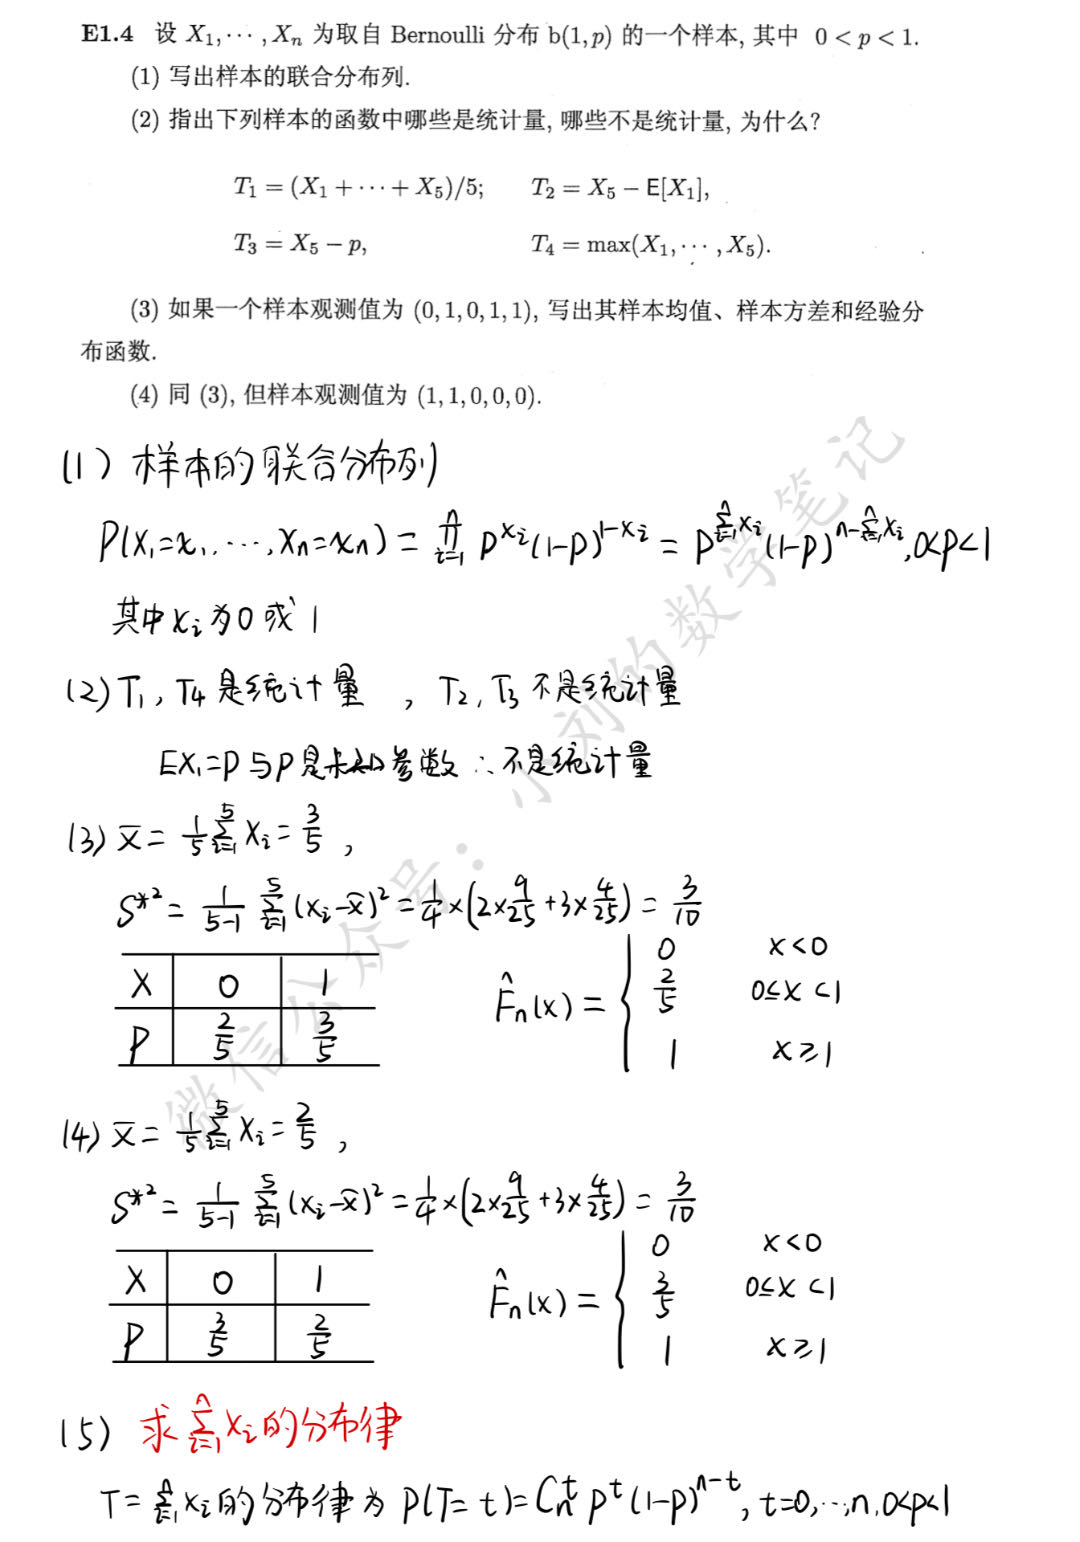 E1.4 设 X₁,⋯,Xₙ 为取自 Bernoulli 分布 b(1,p) 的一个样本, 其中 0<p<1.
(1) 写出样本的联合分布列.
(2) 指出下列样本的函数中哪些是统计量, 哪些不是统计量, 为什么?
T₁ = (X₁ + ⋯ + X₅)/5; T₂ = X₅ − E[X₁],
T₃ = X₅ − p, T₄ = max(X₁,⋯,X₅).
(3) 如果一个样本观测值为 (0,1,0,1,1), 写出其样本均值、样本方差和经验分
布函数.
(4) 同 (3), 但样本观测值为 (1,1,0,0,0).
(1) 样本的联合分布列
P(X₁=x₁,⋯,Xₙ=xₙ) = ∏_{i=1}^{n} p^{x_i}(1-p)^{1-x_i} = p^{∑_{i=1}^{n} x_i}(1-p)^{n-∑_{i=1}^{n} x_i}, 0<p<1
其中 x_i 为 0 或 1
(2) T₁, T₄ 是统计量, T₂, T₃ 不是统计量
EX₁=p 与 p 是未知参数 ∴不是统计量
(3) x̄ = 1/5 ∑_{i=1}^{5} X_i = 3/5,
S*² = 1/(5-1) ∑_{i=1}^{5} (x_i-x̄)² = 1/4×(2×9/25+3×4/25) = 3/10
X 0 1
P 2/5 3/5
F̂ₙ(x) = { 0 x<0
2/5 0≤x<1
1 x≥1
(4) x̄ = 1/5 ∑_{i=1}^{5} X_i = 2/5,
S*² = 1/(5-1) ∑_{i=1}^{5} (x_i-x̄)² = 1/4×(2×9/25+3×4/25) = 3/10
X 0 1
P 3/5 2/5
F̂ₙ(x) = { 0 x<0
3/5 0≤x<1
1 x≥1
(5) 求 ∑_{i=1}^{n} X_i 的分布律
T = ∑_{i=1}^{n} X_i 的分布律为 P(T=t) = C_n^t p^t (1-p)^{n-t}, t=0,⋯,n, 0<p<1
微信公众号：小刘的数学笔记